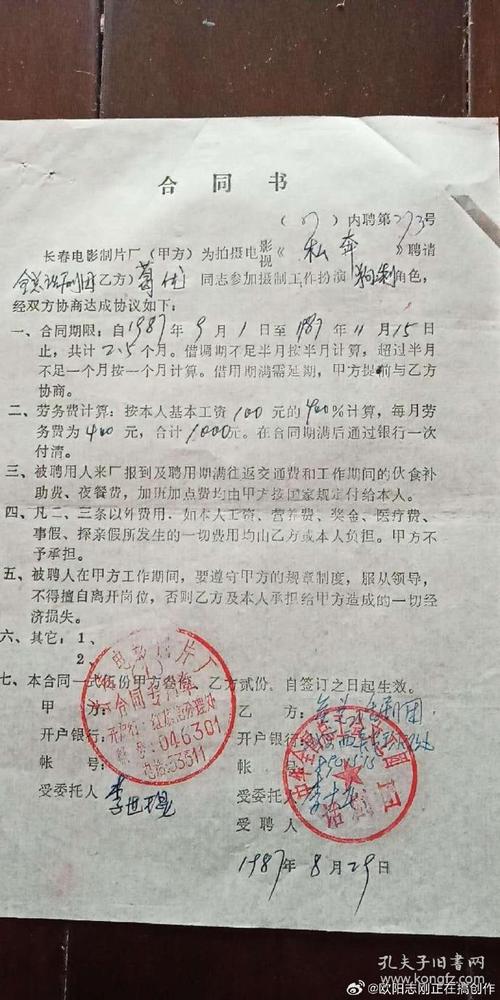 合同书
(87)内聘第273号
长春电影制片厂（甲方）为拍摄电影视《私奔》聘请
全总话剧团乙方）葛优同志参加摄制工作扮演 角色，
经双方协商达成协议如下：
一、合同期限：自1987年9月1日至1987年11月15日
止，共计2.5个月。借调期不足半月按半月计算，超过半月
不足一个月按一个月计算。借用期满需延期，甲方提前与乙方
协商。
二、劳务费计算：按本人基本工资100元的400%计算，每月劳
务费为400元，合计1000元。在合同期满后通过银行一次
付清。
三、被聘用人来厂报到及聘用期满往返交通费和工作期间的伙食补
助费、夜餐费，加班加点费均由甲方按国家规定付给本人。
四、凡二、三条以外费用．如本人工资、营养费、奖金、医疗费、
事假、探亲假所发生的一切费用均由乙方或本人负担。甲方不
予承担。
五、被聘人在甲方工作期间，要遵守甲方的规章制度，服从领导，
不得擅自离开岗位，否则乙方及本人承担给甲方造成的一切经
济损失。
六、其它：1、
2、
七、本合同一式伍份甲方叁份，乙方贰份。自签订之日起生效。
甲方：
乙方：全总话剧团
开户银行：
开户银行：
帐号：
帐号：
受委托人
受委托人
受聘人
1987年8月29日
电影制片厂
合同专用章
开户行：
帐号：046301
电话：53511
话剧团
孔夫子旧书网
www.kongfz.com
@欧阳志刚正在搞创作